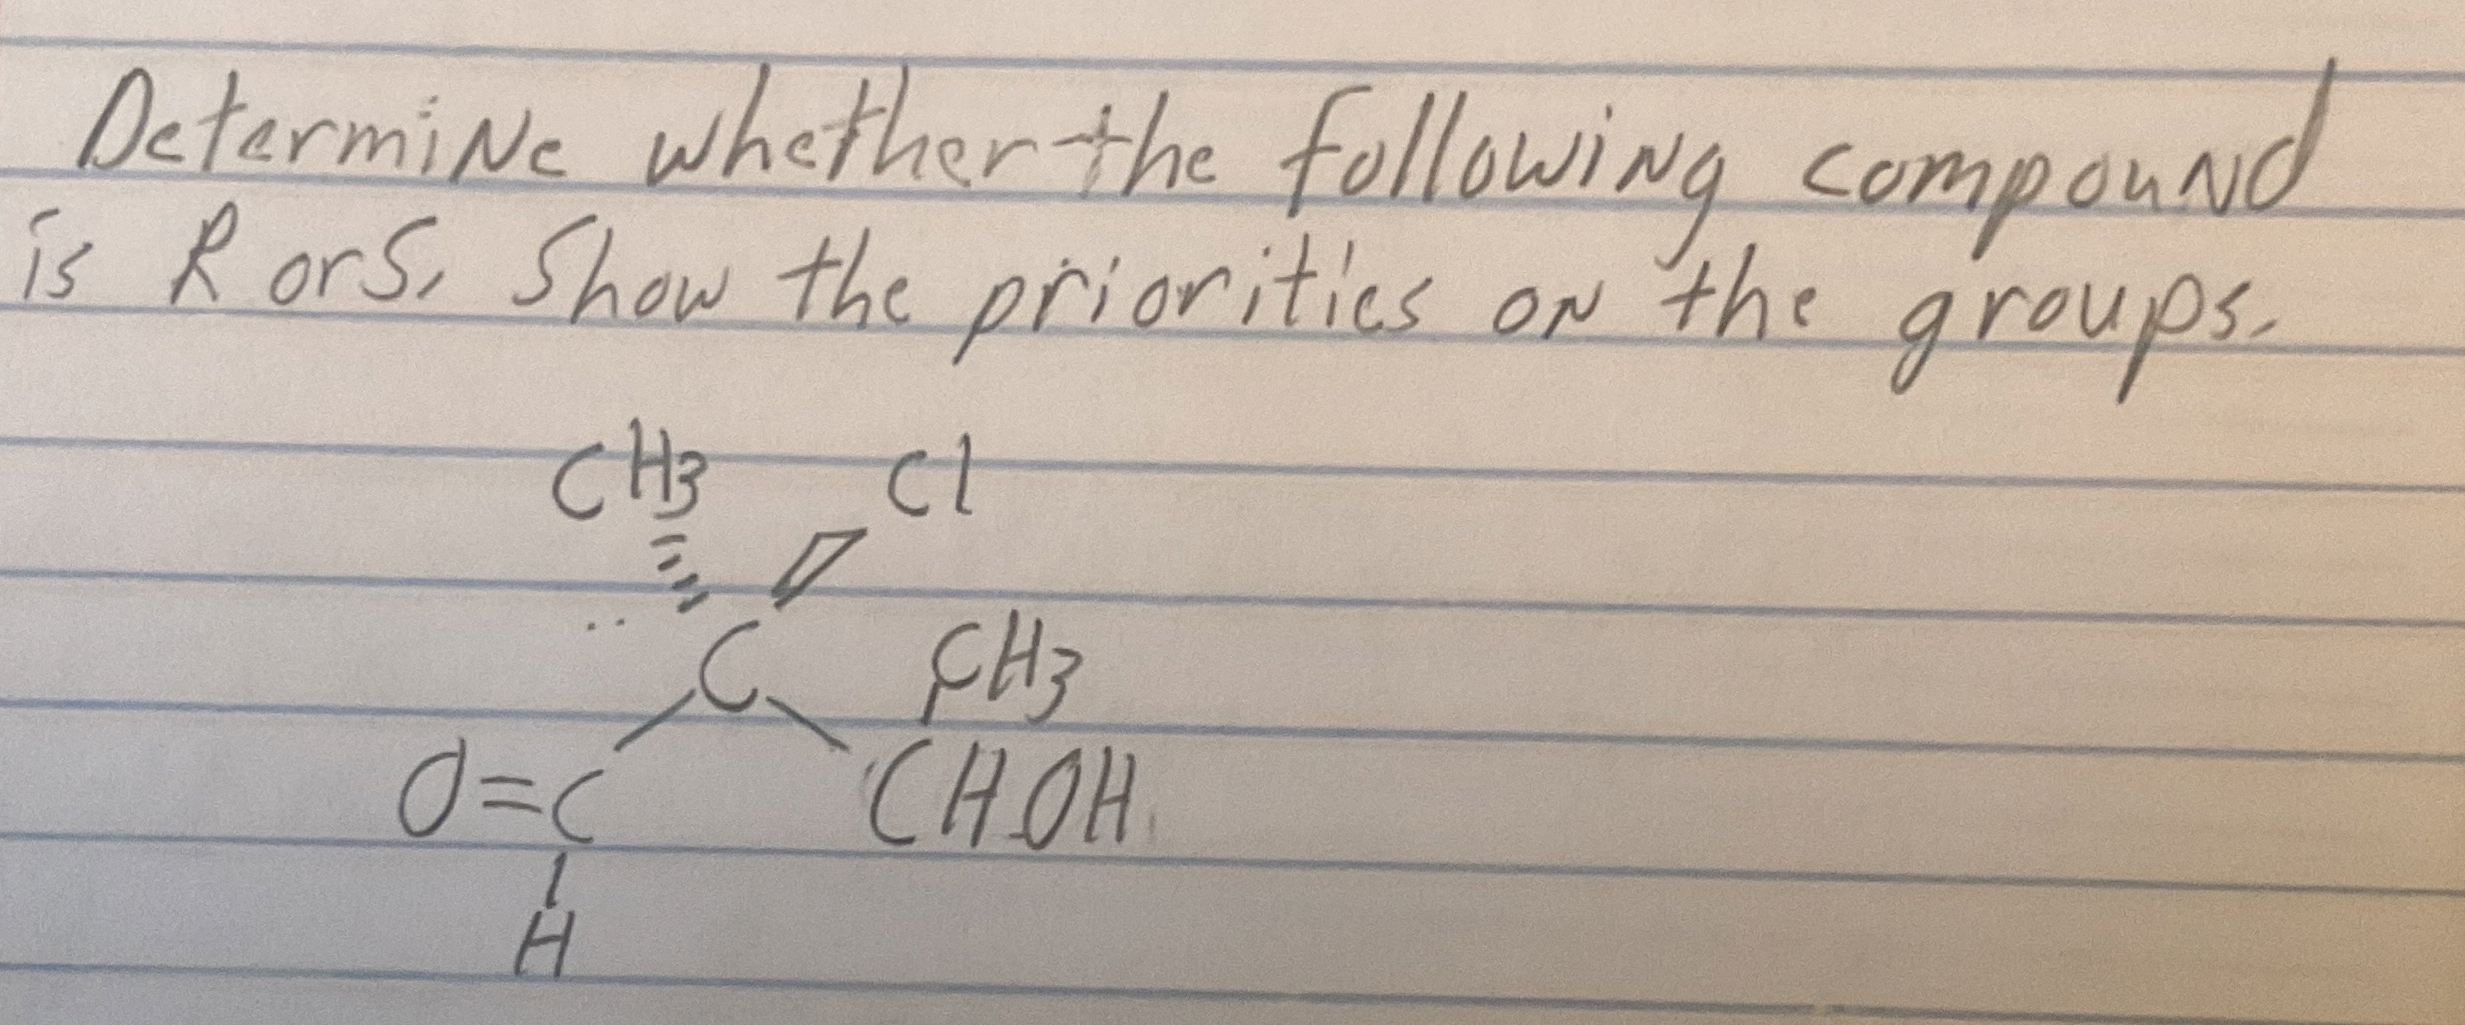 Determine whether the following compound
is R or S. Show the priorities on the groups.
CH3 Cl
C CH3
O=C CHOH
H